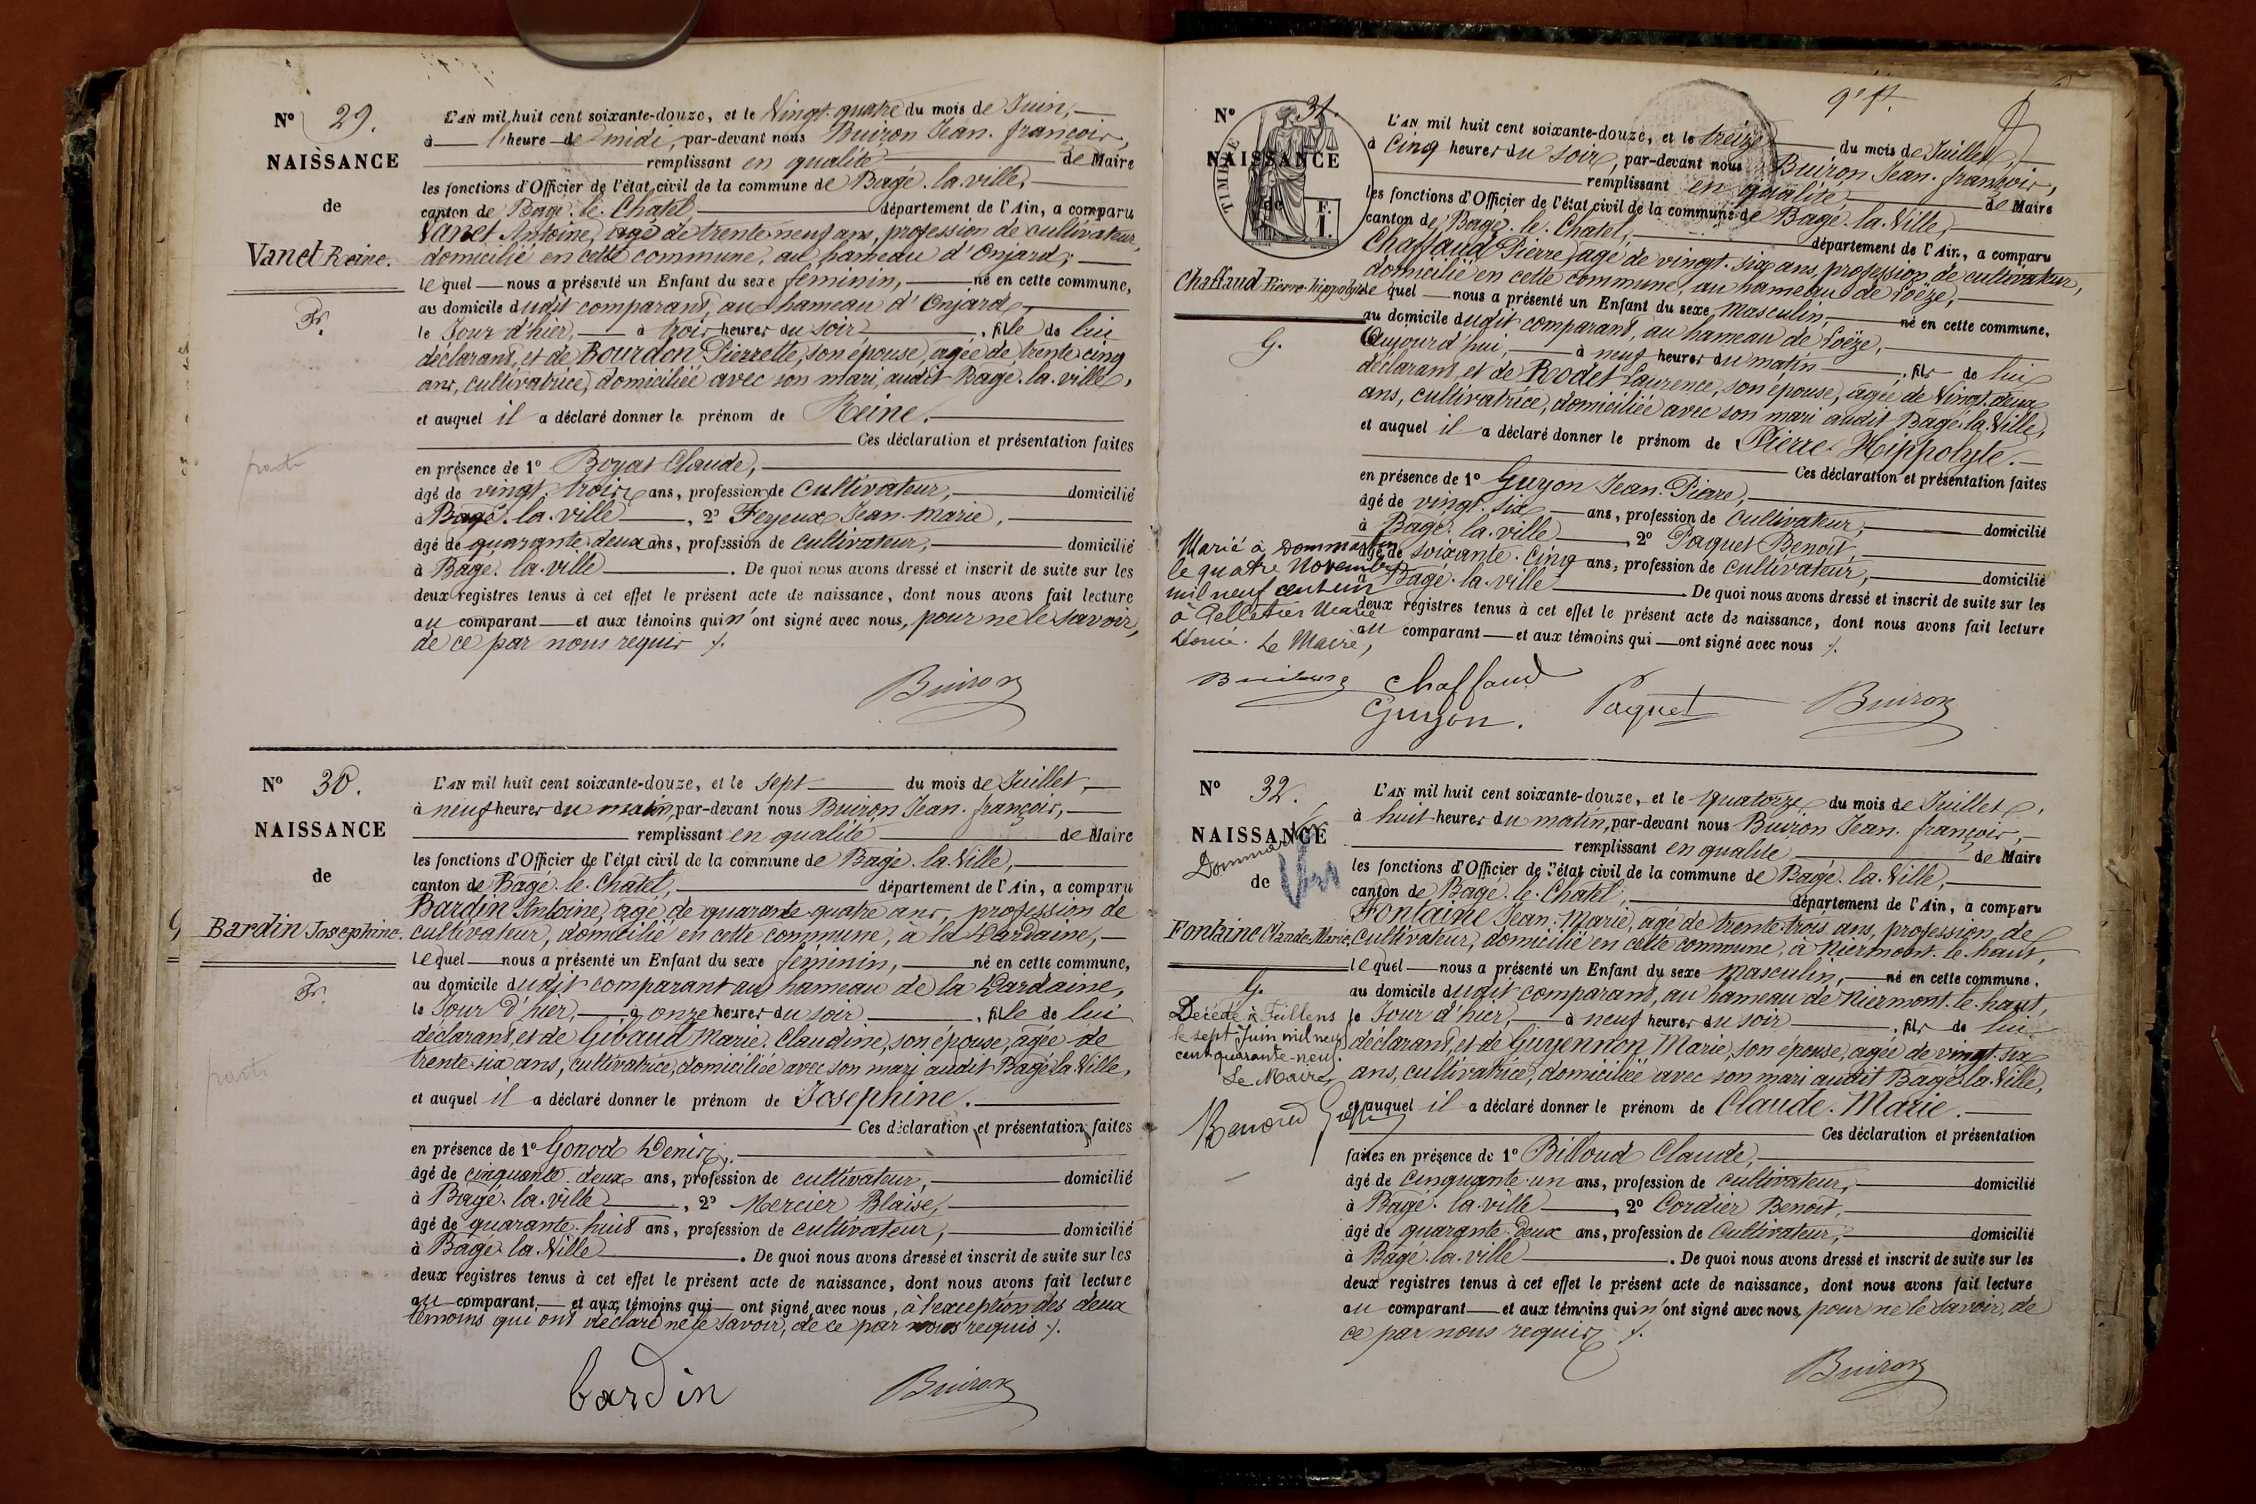 N° 29.
NAISSANCE
de
Vanet Reine.
F.
parti
L'AN mil huit cent soixante-douze, et le Vingt quatre du mois de Juin,
à l'heure de midi, par-devant nous Buiron Jean. françois,
remplissant en qualité de Maire
les fonctions d'Officier de l'état civil de la commune de Bagé. la. ville,
canton de Bagé. le. Chatel, département de l'Ain, a comparu
Vanet Antoine, agé de trente neuf ans, profession de cultivateur,
domicilié en cette commune, au hameau d'Onjard,
lequel nous a présenté un Enfant du sexe féminin, né en cette commune,
au domicile dudit comparant, au hameau d'Onjard,
le Jour d'hier, à trois heures du soir, , fille de lui
déclarant, et de Bourdon Pierrette, son épouse, agée de trente cinq
ans, cultivatrice, domiciliée avec son mari, audit Bagé. la. ville,
et auquel il a déclaré donner le prénom de Reine.
Ces déclaration et présentation faites
en présence de 1° Boyat Claude,
âgé de vingt. trois ans, profession de cultivateur, domicilié
à Bagé. la. ville , 2° Feyeux Jean. marie,
âgé de quarante. deux ans, profession de cultivateur, domicilié
à Bagé. la. ville . De quoi nous avons dressé et inscrit de suite sur les
deux registres tenus à cet effet le présent acte de naissance, dont nous avons fait lecture
au comparant et aux témoins qui n'ont signé avec nous, pour ne le savoir,
de ce par nous requis ./.
Buiron
N° 30.
NAISSANCE
de
G
Bardin Josephine.
F.
parti
L'AN mil huit cent soixante-douze, et le sept du mois de Juillet,
à neuf heures du matin, par-devant nous Buiron Jean. françois,
remplissant en qualité de Maire
les fonctions d'Officier de l'état civil de la commune de Bagé. la. Ville,
canton de Bagé. le. Chatel, département de l'Ain, a comparu
Bardin Antoine, agé de quarante-quatre ans, profession de
cultivateur, domicilié en cette commune, à la Dardaine,
lequel nous a présenté un Enfant du sexe féminin, né en cette commune,
au domicile dudit comparant au hameau de la Dardaine,
le Jour d'hier, à onze heures du soir , fille de lui
déclarant, et de Gibaud Marie. Claudine, son épouse, agée de
trente. six ans, cultivatrice, domiciliée avec son mari audit Bagé. la. Ville,
et auquel il a déclaré donner le prénom de Josephine.
Ces déclaration et présentation faites
en présence de 1° Gonod Denis,
âgé de cinquante. deux ans, profession de cultivateur, domicilié
à Bagé. la. ville , 2° Mercier Blaise,
âgé de quarante. huit ans, profession de cultivateur, domicilié
à Bagé. la. Ville . De quoi nous avons dressé et inscrit de suite sur les
deux registres tenus à cet effet le présent acte de naissance, dont nous avons fait lecture
au comparant, et aux témoins qui ont signé avec nous, à l'exception des deux
témoins qui ont déclaré ne le savoir, de ce par nous requis ./.
bardin
Buiron
N° 31.
NAISSANCE
de
TIMBRE
F.
1.
Chaffaud Pierre-hippolyte
G.
Marié à Dommartin
le quatre Novembre
mil neuf cent un
à Pelletier Marie
Le Maire,
9e ft.
L'AN mil huit cent soixante-douze, et le treize du mois de Juillet,
à Cinq heures du soir, par-devant nous Buiron Jean. françois,
remplissant en qualité, de Maire
les fonctions d'Officier de l'état civil de la commune de Bagé. la. Ville,
canton de Bagé. le. Chatel, département de l'Ain, a comparu
Chaffaud Pierre, agé de vingt. six ans, profession de cultivateur,
domicilié en cette commune, au hameau de Loëze,
lequel nous a présenté un Enfant du sexe masculin, né en cette commune,
au domicile dudit comparant, au hameau de Loëze,
Aujourd'hui, à neuf heures du matin , fils de lui
déclarant, et de Rodet Laurence, son épouse, agée de Vingt. deux
ans, cultivatrice, domiciliée avec son mari audit Bagé. la. Ville,
et auquel il a déclaré donner le prénom de Pierre Hippolyte.
Ces déclaration et présentation faites
en présence de 1° Guyon Jean. Pierre,
âgé de vingt. six ans, profession de Cultivateur, domicilié
à Bagé. la. ville , 2° Paquet Benoit,
âgé de soixante. cinq ans, profession de cultivateur, domicilié
à Bagé. la. ville . De quoi nous avons dressé et inscrit de suite sur les
deux registres tenus à cet effet le présent acte de naissance, dont nous avons fait lecture
au comparant et aux témoins qui ont signé avec nous ./.
Chaffaud
Guyon.
Paquet
Buiron
N° 32.
NAISSANCE
Dommartin
de
Fontaine Claude-Marie
G.
Décédé à Fillens
le sept Juin mil neuf
cent quarante-neuf.
Le Maire,
L'AN mil huit cent soixante-douze, et le quatorze du mois de Juillet,
à huit heures du matin, par-devant nous Buiron Jean. françois,
remplissant en qualité de Maire
les fonctions d'Officier de l'état civil de la commune de Bagé. la. Ville,
canton de Bagé. le. Chatel, département de l'Ain, a comparu
Fontaine Jean. Marie, agé de trente-trois ans, profession de
Cultivateur, domicilié en cette commune, à Niermont. le. haut,
lequel nous a présenté un Enfant du sexe Masculin, né en cette commune,
au domicile dudit comparant, au hameau de Niermont. le. haut,
le Jour d'hier, à neuf heures du soir , fils de lui
déclarant, et de Guyennon Marie, son épouse, agée de vingt. six
ans, cultivatrice, domiciliée avec son mari audit Bagé. la. Ville,
et auquel il a déclaré donner le prénom de Claude. Marie.
Ces déclaration et présentation
faites en présence de 1° Billoud Claude,
âgé de Cinquante. un ans, profession de cultivateur, domicilié
à Bagé. la. ville , 2° Cordier Benoit,
âgé de quarante. deux ans, profession de Cultivateur, domicilié
à Bagé. la. ville . De quoi nous avons dressé et inscrit de suite sur les
deux registres tenus à cet effet le présent acte de naissance, dont nous avons fait lecture
au comparant et aux témoins qui n'ont signé avec nous, pour ne le savoir, de
ce par nous requis ./.
Buiron